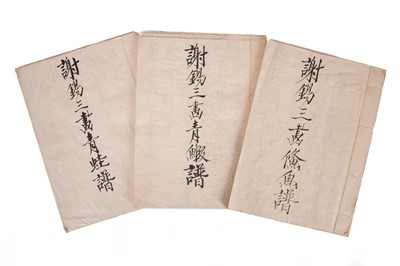 謝錫三畫青蛙譜
謝錫三畫青鰕譜
謝錫三畫魚譜